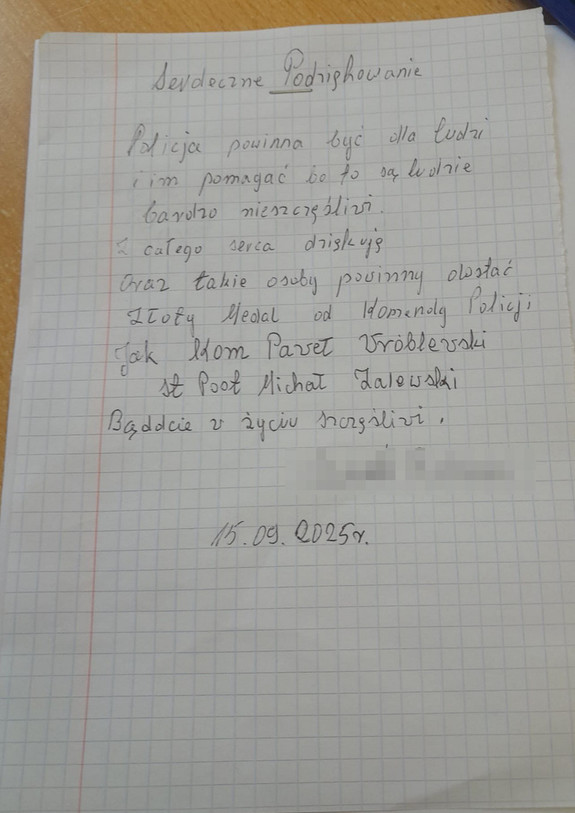 Serdeczne Podziękowanie
Policja powinna być dla ludzi
i im pomagać bo to są ludzie
bardzo nieszczęśliwi.
z całego serca dziękuję
oraz takie osoby powinny dostać
Złoty Medal od Komendy Policji
Jak Kom Paweł Wróblewski
st Post Michał Zalewski
Bąddcie w życiu szczęśliwi.
15.09.2025r.